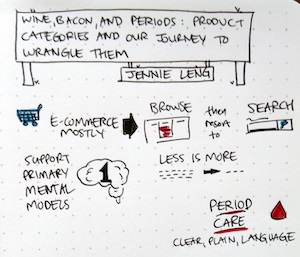 WINE, BACON, AND PERIODS: PRODUCT
CATEGORIES AND OUR JOURNEY TO
WRANGLE THEM
JENNIE LENG
E-COMMERCE
MOSTLY
BROWSE
then
resort
to
SEARCH
SUPPORT
PRIMARY
MENTAL
MODELS
1
LESS IS MORE
PERIOD
CARE
CLEAR, PLAIN, LANGUAGE